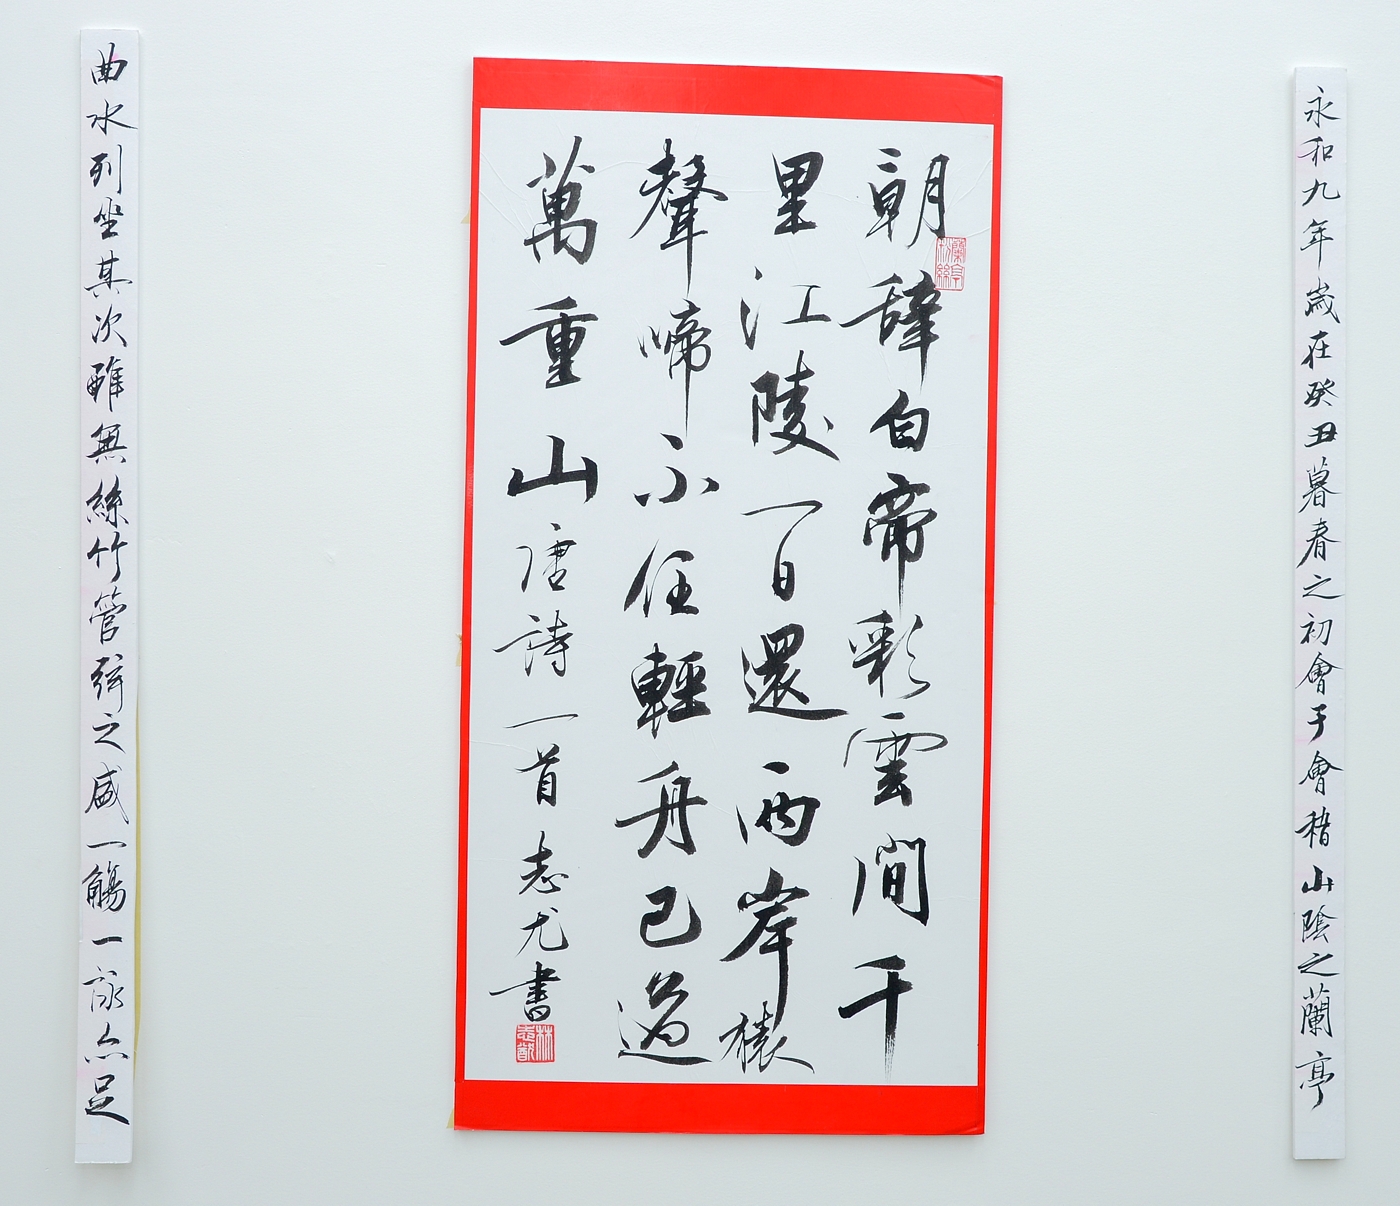 永和九年歲在癸丑暮春之初會于會稽山陰之蘭亭
朝辭白帝彩雲間千
里江陵一日還兩岸猿
聲啼不住輕舟已過
萬重山唐詩一首志尤書
曲水列坐其次雖無絲竹管弦之盛一觴一詠亦足